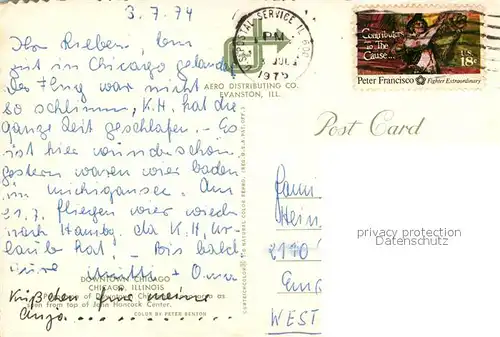 3.7.74
Ihr Lieben, bin
gut in Chicago gelandet
der Flug war nicht
so schlimm, K.H. hat die
ganze Zeit geschlafen. - Es
ist hier wunderschön
gestern waren wir baden
im Michigansee. Am
21.7. fliegen wir wieder
nach Hambg. da K.H. Ur-
laub hat - Bis bald
Eure Mutti + Oma
Küßchen für meine
Anja
DOWNTOWN CHICAGO
CHICAGO, ILLINOIS
seen from top of John Hancock Center.
COLOR BY PETER BENTON
AERO DISTRIBUTING CO.
EVANSTON, ILL.
POSTAL SERVICE IL
PM
JUL
1975
Contributors
To The
Cause...
U.S.
18c
Peter Francisco Fighter Extraordinary
Post Card
Fami
Hein
2110
WEST
privacy protection
Datenschutz